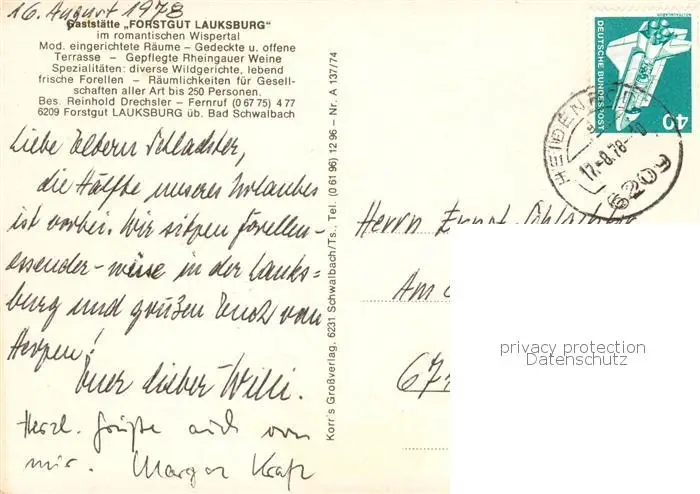 16. August 1978
Gaststätte „FORSTGUT LAUKSBURG“
im romantischen Wispertal
Mod. eingerichtete Räume – Gedeckte u. offene
Terrasse – Gepflegte Rheingauer Weine
Spezialitäten: diverse Wildgerichte, lebend
frische Forellen – Räumlichkeiten für Gesell-
schaften aller Art bis 250 Personen.
Bes. Reinhold Drechsler – Fernruf (0 67 75) 4 77
6209 Forstgut LAUKSBURG üb. Bad Schwalbach
Liebe Eltern Schlachter,
die Hälfte unseres Urlaubes
ist vorbei. Wir sitzen forellen-
essender-weise in der Lauks=
burg und grüßen Euch von
Herzen!
Euer lieber Willi.
Herzl. Grüße auch von
mir. Margot
Korr's Großverlag, 6231 Schwalbach/Ts., Tel. (0 61 96) 12 96 – Nr. A 137/74
DEUTSCHE BUNDESPOST
40
HEIDENROD
17.-8.78-10
6209
Herrn Ernst Schlachter
Am
67
privacy protection
Datenschutz